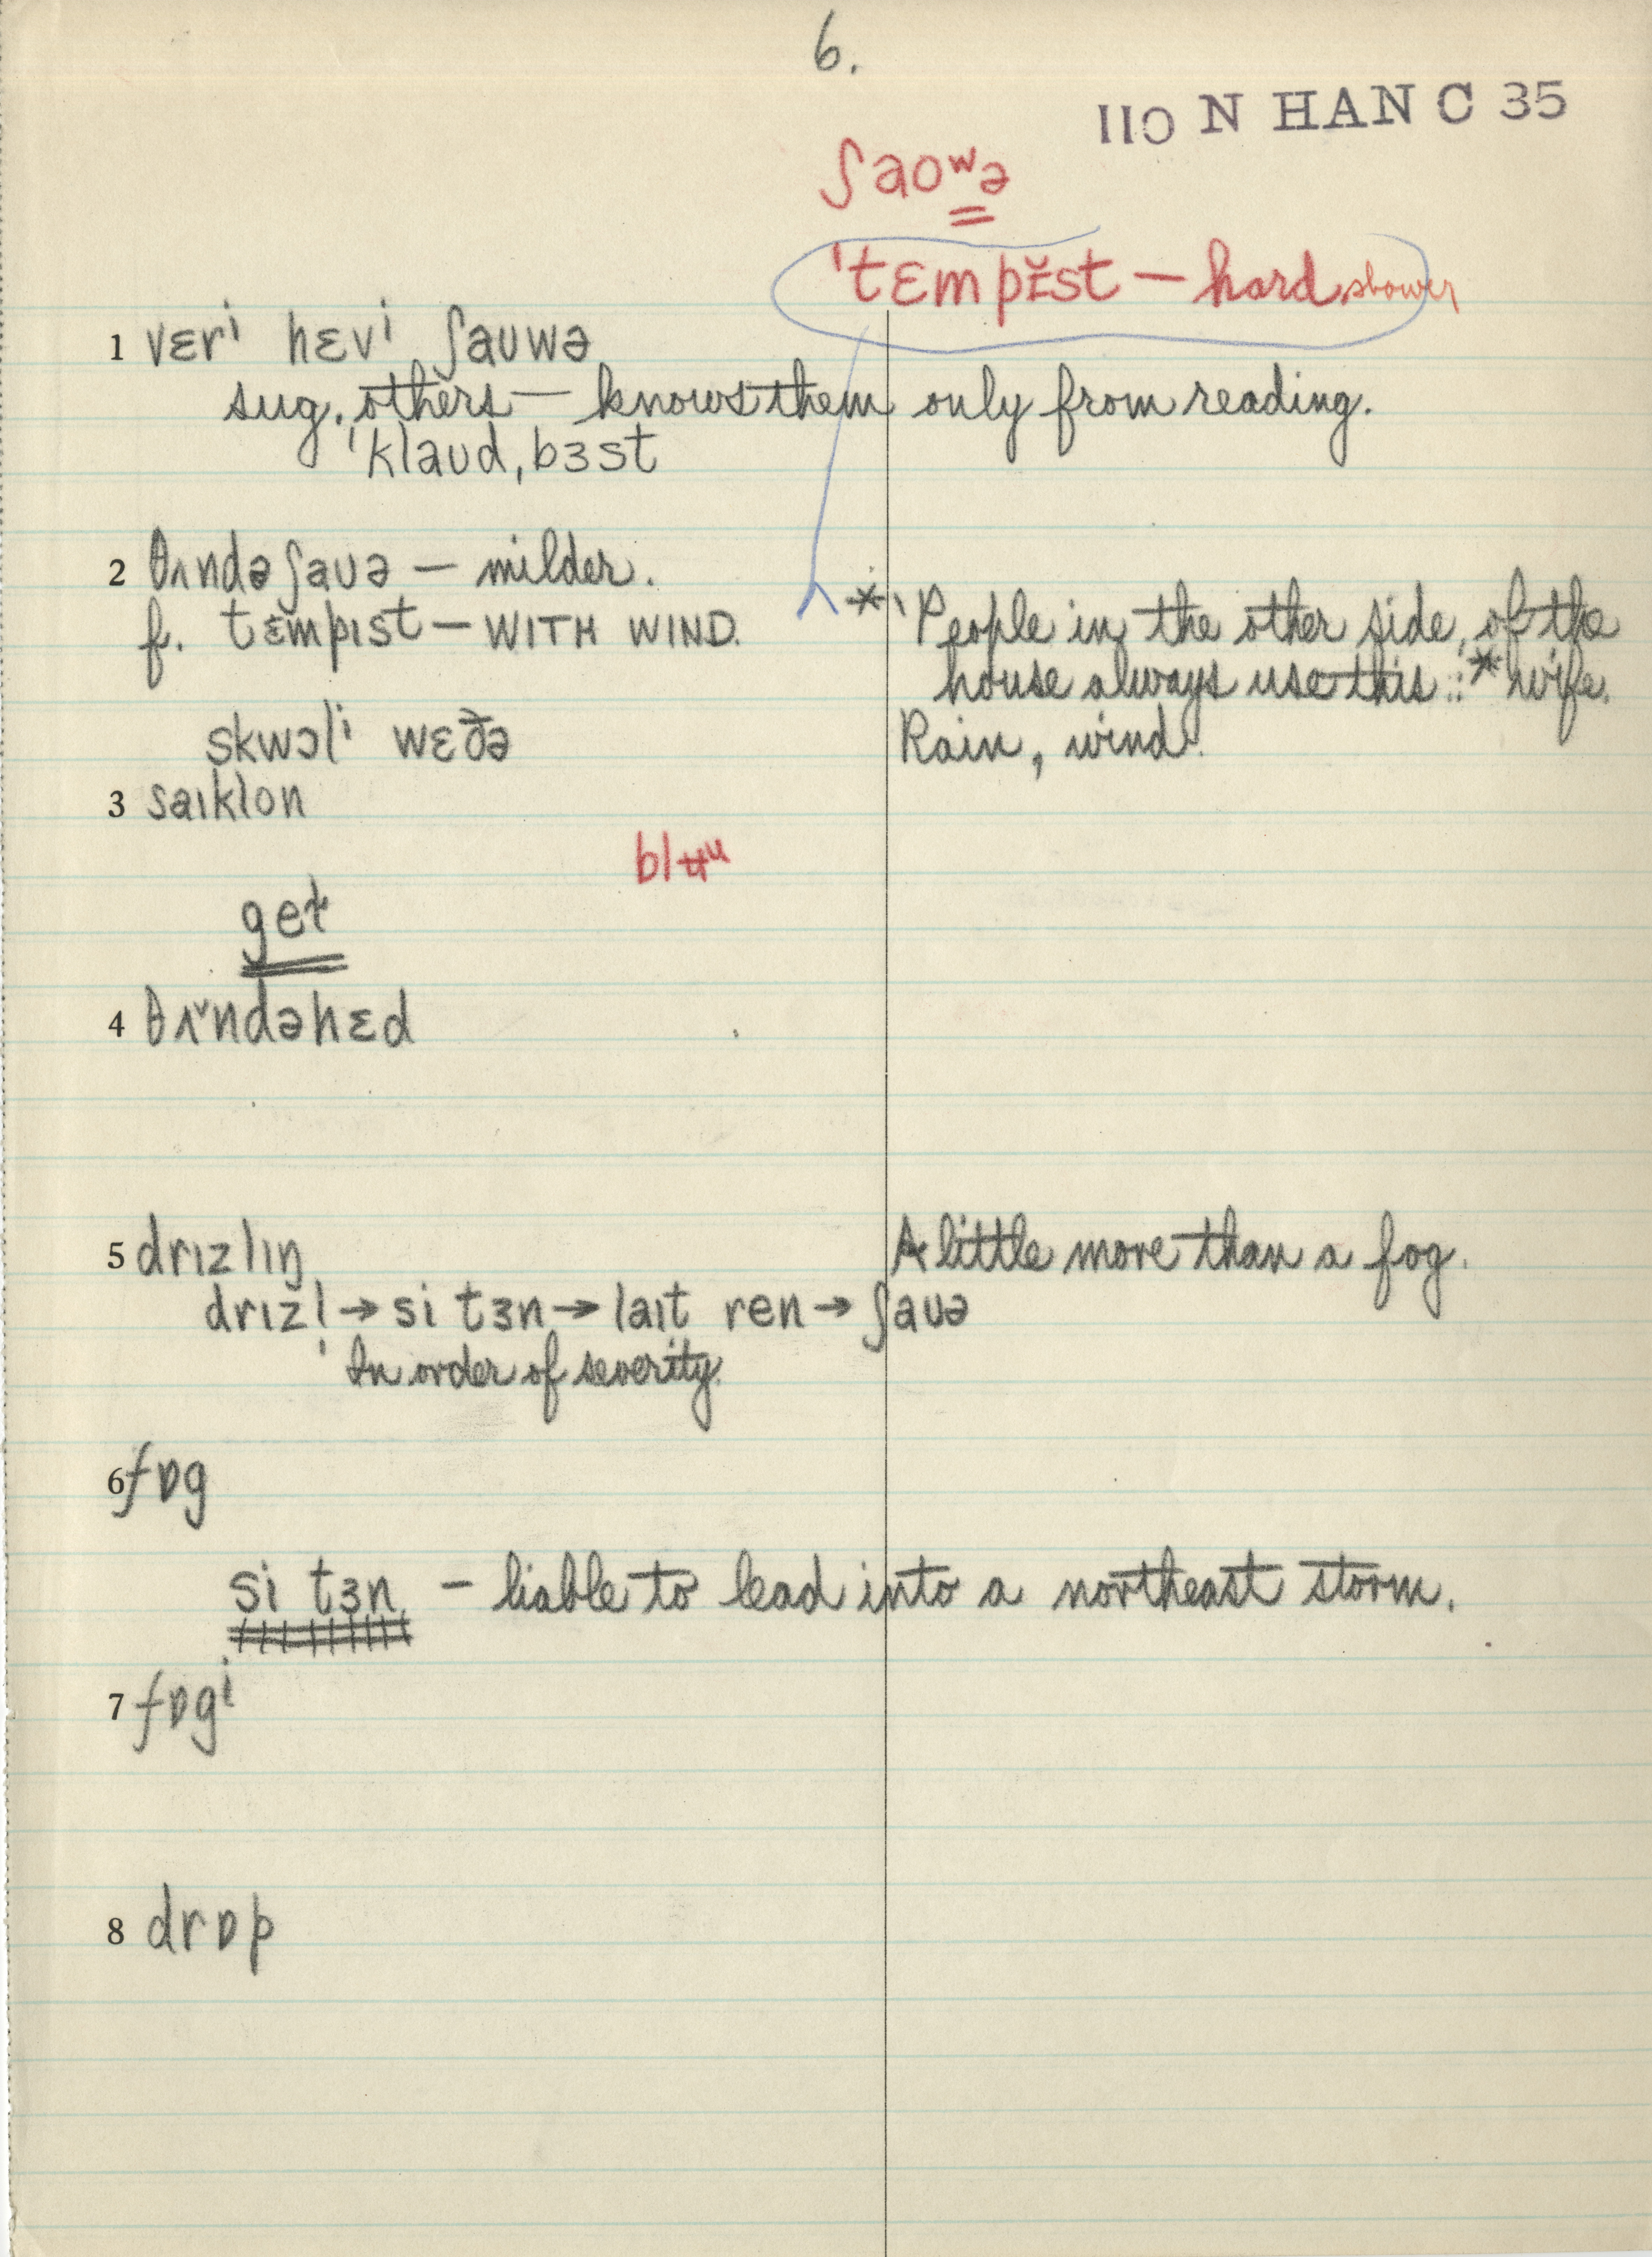 6.
110 N HAN C 35
ʃaoʷə
ˈtɛmpɪ̆st — hard shower
1 vɛrⁱ hɛvⁱ ʃauwə
sug. others — knows them only from reading.
ˈklaʊd,bɜst
2 θʌndəʃaʊə — milder.
f. tɛmpɪst — WITH WIND.
* People in the other side of the
house always use this :: * wife.
skwɔlⁱ wɛðə
Rain, wind.
3 saɪklon
blʉᵘ
get
4 θʌ̌ndəhɛd
5 drɪzlɪŋ
A little more than a fog.
drɪzl̩ → si tɜn → laɪt ren → ʃaʊə
In order of severity.
6 fɒg
si tɜn — liable to lead into a northeast storm.
7 fɒgⁱ
8 drɒp